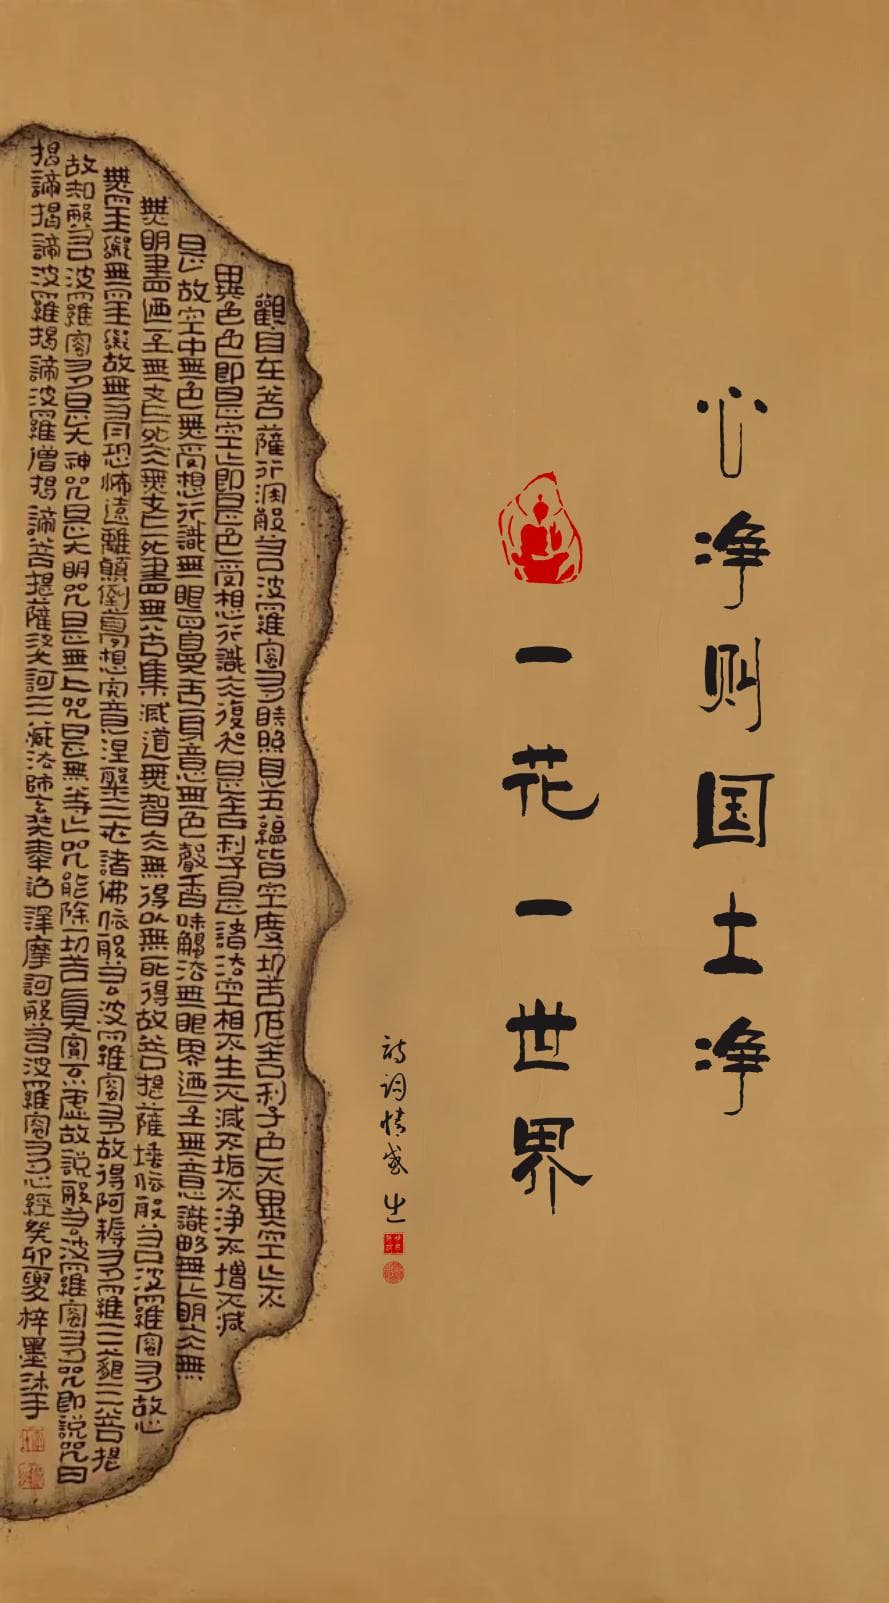 心净则国土净
一花一世界
诗词情
觀自在菩薩行深般若波羅蜜多時照見五蘊皆空度一切苦厄舍利子色不異空空不
異色色即是空空即是色受想行識亦復如是舍利子是諸法空相不生不滅不垢不淨不增不減
是故空中無色無受想行識無眼耳鼻舌身意無色聲香味觸法無眼界迺至無意識界無無明亦無
無明盡迺至無老死亦無老死盡無苦集滅道無智亦無得以無所得故菩提薩埵依般若波羅蜜多故心
無罣礙無罣礙故無有恐怖遠離顛倒夢想究竟涅槃三世諸佛依般若波羅蜜多故得阿耨多羅三藐三菩提
故知般若波羅蜜多是大神咒是大明咒是無上咒是無等等咒能除一切苦真實不虛故說般若波羅蜜多咒即說咒曰
揭諦揭諦波羅揭諦波羅僧揭諦菩提薩婆訶三藏法師玄奘奉詔譯摩訶般若波羅蜜多心經癸卯夏梓墨沐手